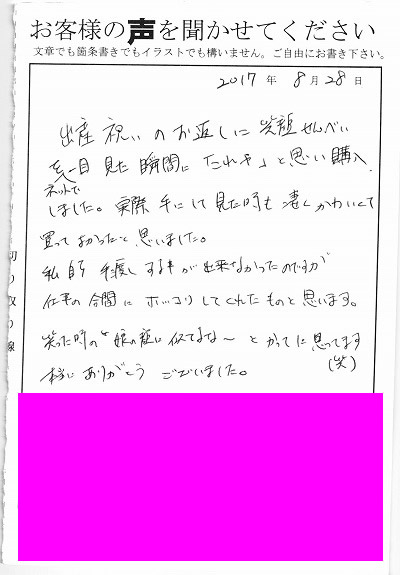 お客様の声を聞かせてください
文章でも箇条書きでもイラストでも構いません。ご自由にお書き下さい。
2017年 8月28日
出産祝いのお返しに笑顔せんべい
を一目見た瞬間に「これや」と思い購入
ネットで
しました。実際手にして見た時も凄くかわいくて
買ってよかったと思いました。
私自身手渡しする事が出来なかったのですが
仕事の合間にホッコリしてくれたものと思います。
笑った時の“娘の顔に似てるな〜とかってに思ってます
(笑)
本当にありがとうございました。
切り取り線